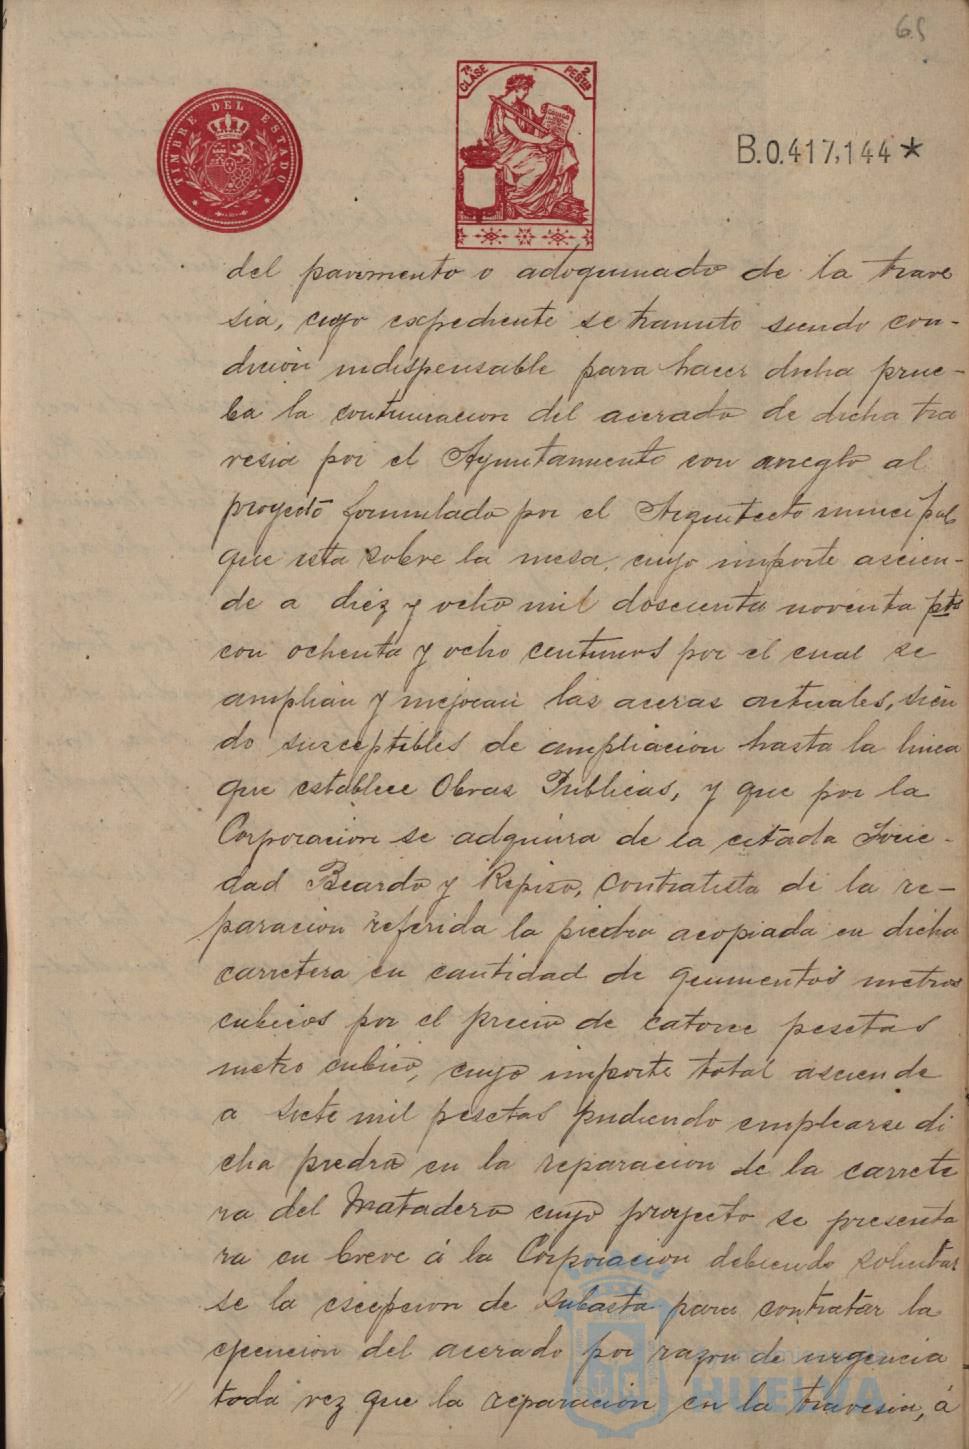 65
TIMBRE DEL ESTADO
7ª CLASE 2 PESTAS
B.0.417,144*
del pavimento o adoquinado de la trave
sia, cuyo expediente se tramito siendo con-
dicion indispensable para hacer dicha prue-
ba la continuacion del acerado de dicha tra
vesia por el Ayuntamiento con arreglo al
proyecto formulado por el Arquitecto municipal
que esta sobre la mesa, cuyo importe ascien-
de a diez y ocho mil doscienta noventa pts
con ochenta y ocho centimos por el cual se
amplian y mejoran las aceras actuales, sien
do susceptibles de ampliacion hasta la linea
que establece Obras Publicas, y que por la
Corporacion se adquiera de la citada Socie-
dad Beardo y Repiso, contratista de la re-
paracion referida la piedra acopiada en dicha
carretera en cantidad de quinientos metros
cubicos por el precio de catorce pesetas
metro cubico, cuyo importe total asciende
a siete mil pesetas pudiendo emplearse di
cha piedra en la reparacion de la carrete
ra del Matadero cuyo proyecto se presenta
ra en breve á la Corporacion debiendo solicitar
se la escepcion de subasta para contratar la
ejecucion del acerado por razon de urgencia
toda vez que la reparacion en la travesia, á
HUELVA